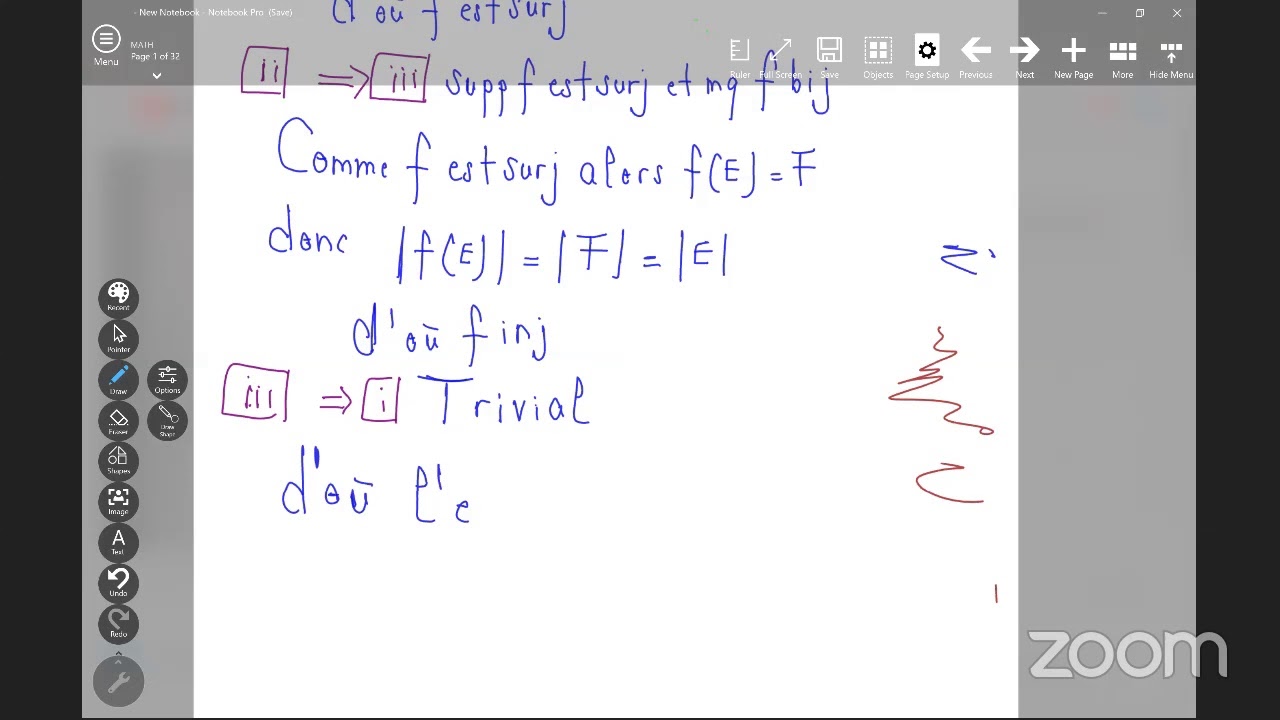 - New Notebook - Notebook Pro (Save)
Menu
MATH
Page 1 of 32
Ruler
Full Screen
Save
Objects
Page Setup
Previous
Next
New Page
More
Hide Menu
d'où f est surj
ii ⇒ iii supp f est surj et mq f bij
Comme f est surj alors f(E) = F
donc |f(E)| = |F| = |E|
d'où f inj
iii ⇒ i Trivial
d'où l'e
Recent
Pointer
Draw
Options
Eraser
Draw Shape
Shapes
Image
A
Text
Undo
Redo
zoom